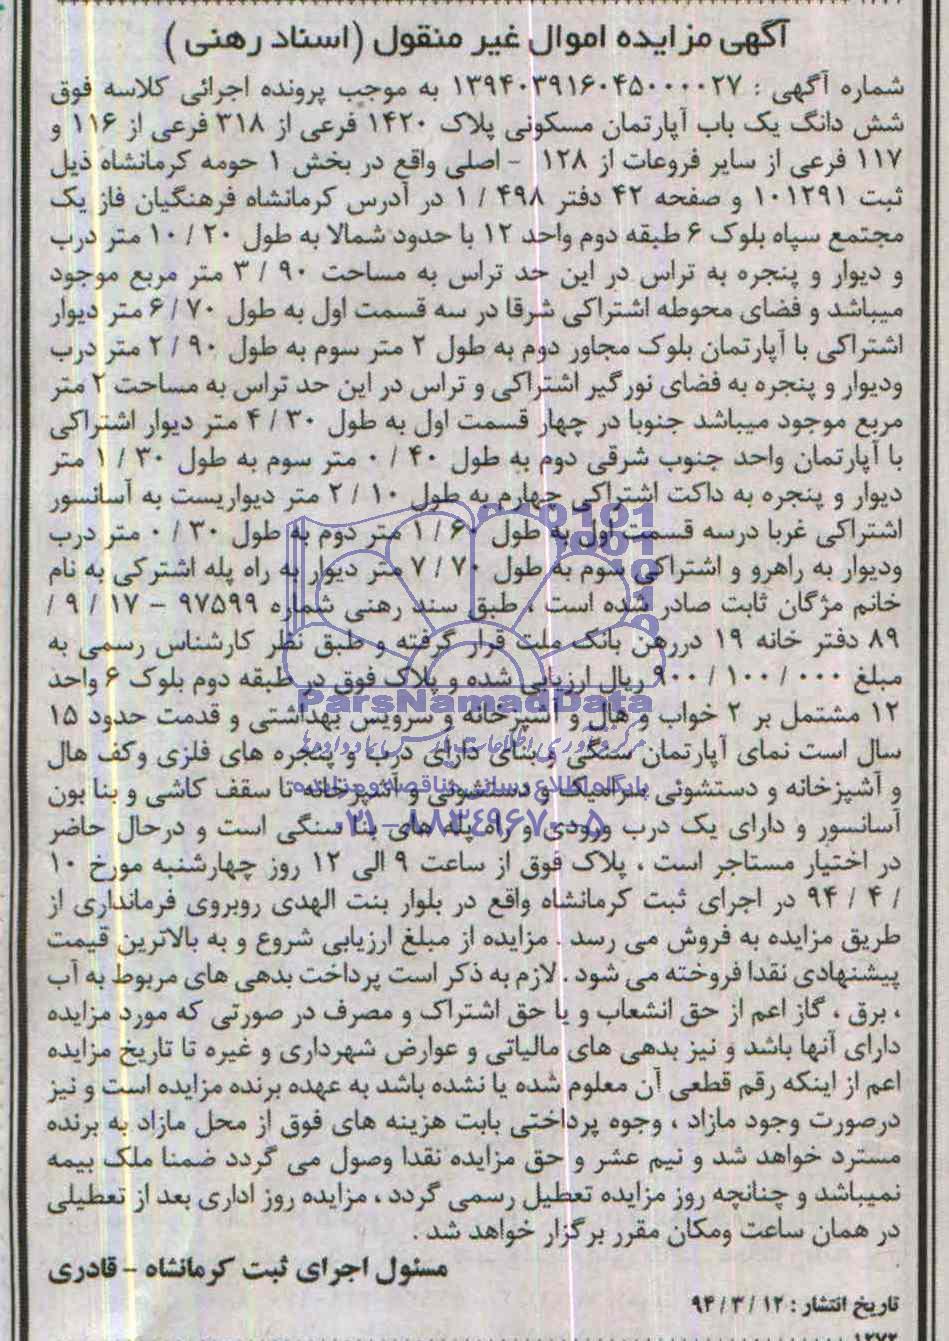 آگهی مزایده اموال غیر منقول (اسناد رهنی )
شماره آگهی : ۱۳۹۴۰۳۹۱۶۰۴۵۰۰۰۰۲۷ به موجب پرونده اجرائی کلاسه فوق
شش دانگ یک باب آپارتمان مسکونی پلاک ۱۴۲۰ فرعی از ۳۱۸ فرعی از ۱۱۶ و
۱۱۷ فرعی از سایر فروعات از ۱۲۸ - اصلی واقع در بخش ۱ حومه کرمانشاه ذیل
ثبت ۱۰۱۲۹۱ و صفحه ۴۲ دفتر ۴۹۸ / ۱ در آدرس کرمانشاه فرهنگیان فاز یک
مجتمع سپاه بلوک ۶ طبقه دوم واحد ۱۲ با حدود شمالا به طول ۲۰ / ۱۰ متر درب
و دیوار و پنجره به تراس در این حد تراس به مساحت ۹۰ / ۳ متر مربع موجود
میباشد و فضای محوطه اشتراکی شرقا در سه قسمت اول به طول ۷۰ / ۶ متر دیوار
اشتراکی با آپارتمان بلوک مجاور دوم به طول ۲ متر سوم به طول ۹۰ / ۲ متر درب
ودیوار و پنجره به فضای نورگیر اشتراکی و تراس در این حد تراس به مساحت ۲ متر
مربع موجود میباشد جنوبا در چهار قسمت اول به طول ۳۰ / ۴ متر دیوار اشتراکی
با آپارتمان واحد جنوب شرقی دوم به طول ۴۰ / ۰ متر سوم به طول ۳۰ / ۱ متر
دیوار و پنجره به داکت اشتراکی چهارم به طول ۱۰ / ۲ متر دیواریست به آسانسور
اشتراکی غربا درسه قسمت اول به طول ۶۰ / ۱ متر دوم به طول ۳۰ / ۰ متر درب
ودیوار به راهرو و اشتراکی سوم به طول ۷۰ / ۷ متر دیوار به راه پله اشترکی به نام
خانم مژگان ثابت صادر شده است ، طبق سند رهنی شماره ۹۷۵۹۹ - ۱۷ / ۹ /
۸۹ دفتر خانه ۱۹ دررهن بانک ملت قرار گرفته و طبق نظر کارشناس رسمی به
مبلغ ۰۰۰ / ۱۰۰ / ۹۰۰ ریال ارزیابی شده و پلاک فوق در طبقه دوم بلوک ۶ واحد
۱۲ مشتمل بر ۲ خواب و هال و آشپزخانه و سرویس بهداشتی و قدمت حدود ۱۵
سال است نمای آپارتمان سنگی و بنای دارای درب و پنجره های فلزی وکف هال
و آشپزخانه و دستشوئی سرامیک و دستشوئی و آشپزخانه تا سقف کاشی و بنا بون
آسانسور و دارای یک درب ورودی و راه پله های بنا سنگی است و درحال حاضر
در اختیار مستاجر است ، پلاک فوق از ساعت ۹ الی ۱۲ روز چهارشنبه مورخ ۱۰
/ ۴ / ۹۴ در اجرای ثبت کرمانشاه واقع در بلوار بنت الهدی روبروی فرمانداری از
طریق مزایده به فروش می رسد . مزایده از مبلغ ارزیابی شروع و به بالاترین قیمت
پیشنهادی نقدا فروخته می شود . لازم به ذکر است پرداخت بدهی های مربوط به آب
، برق ، گاز اعم از حق انشعاب و یا حق اشتراک و مصرف در صورتی که مورد مزایده
دارای آنها باشد و نیز بدهی های مالیاتی و عوارض شهرداری و غیره تا تاریخ مزایده
اعم از اینکه رقم قطعی آن معلوم شده یا نشده باشد به عهده برنده مزایده است و نیز
درصورت وجود مازاد ، وجوه پرداختی بابت هزینه های فوق از محل مازاد به برنده
مسترد خواهد شد و نیم عشر و حق مزایده نقدا وصول می گردد ضمنا ملک بیمه
نمیباشد و چنانچه روز مزایده تعطیل رسمی گردد ، مزایده روز اداری بعد از تعطیلی
در همان ساعت ومکان مقرر برگزار خواهد شد .
مسئول اجرای ثبت کرمانشاه - قادری
تاریخ انتشار : ۱۲ / ۳ / ۹۴
ParsNamadData
پایگاه اطلاع رسانی مناقصه و مزایده
۰۲۱-۸۸۳۴۹۶۷۰-۵